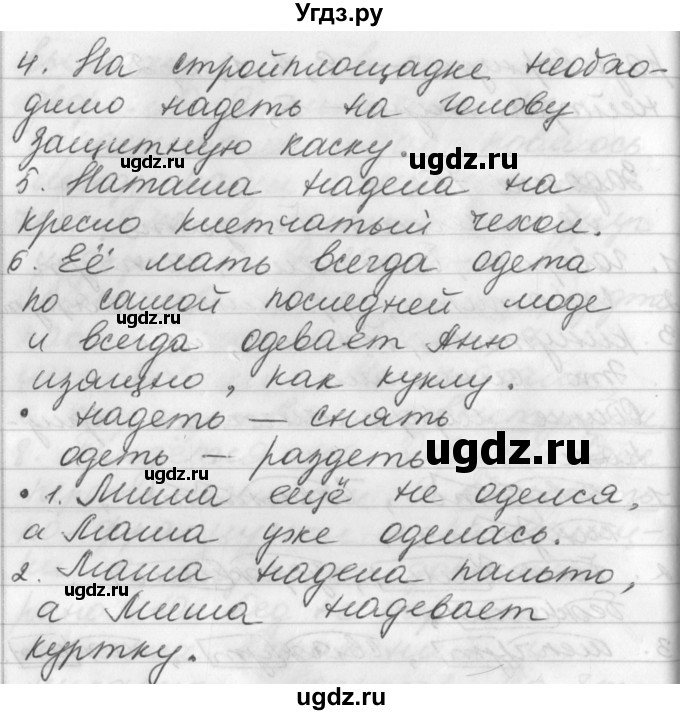 Угдз.ру
4. На стройплощадке необхо-
димо надеть на голову
защитную каску.
ugdz.ru
ugdz.ru
5. Наташа надела на
кресло клетчатый чехол.
6. Её мать всегда одета
по самой последней моде
ugdz.ru
и всегда одевает Аню
изящно, как куклу.
• надеть — снять
одеть — раздеть
ugdz.ru
ugdz.ru
• 1. Миша ещё не оделся,
а Маша уже оделась.
2. Маша надела пальто,
а Миша надевает
куртку.
ugdz.ru
ugdz.ru